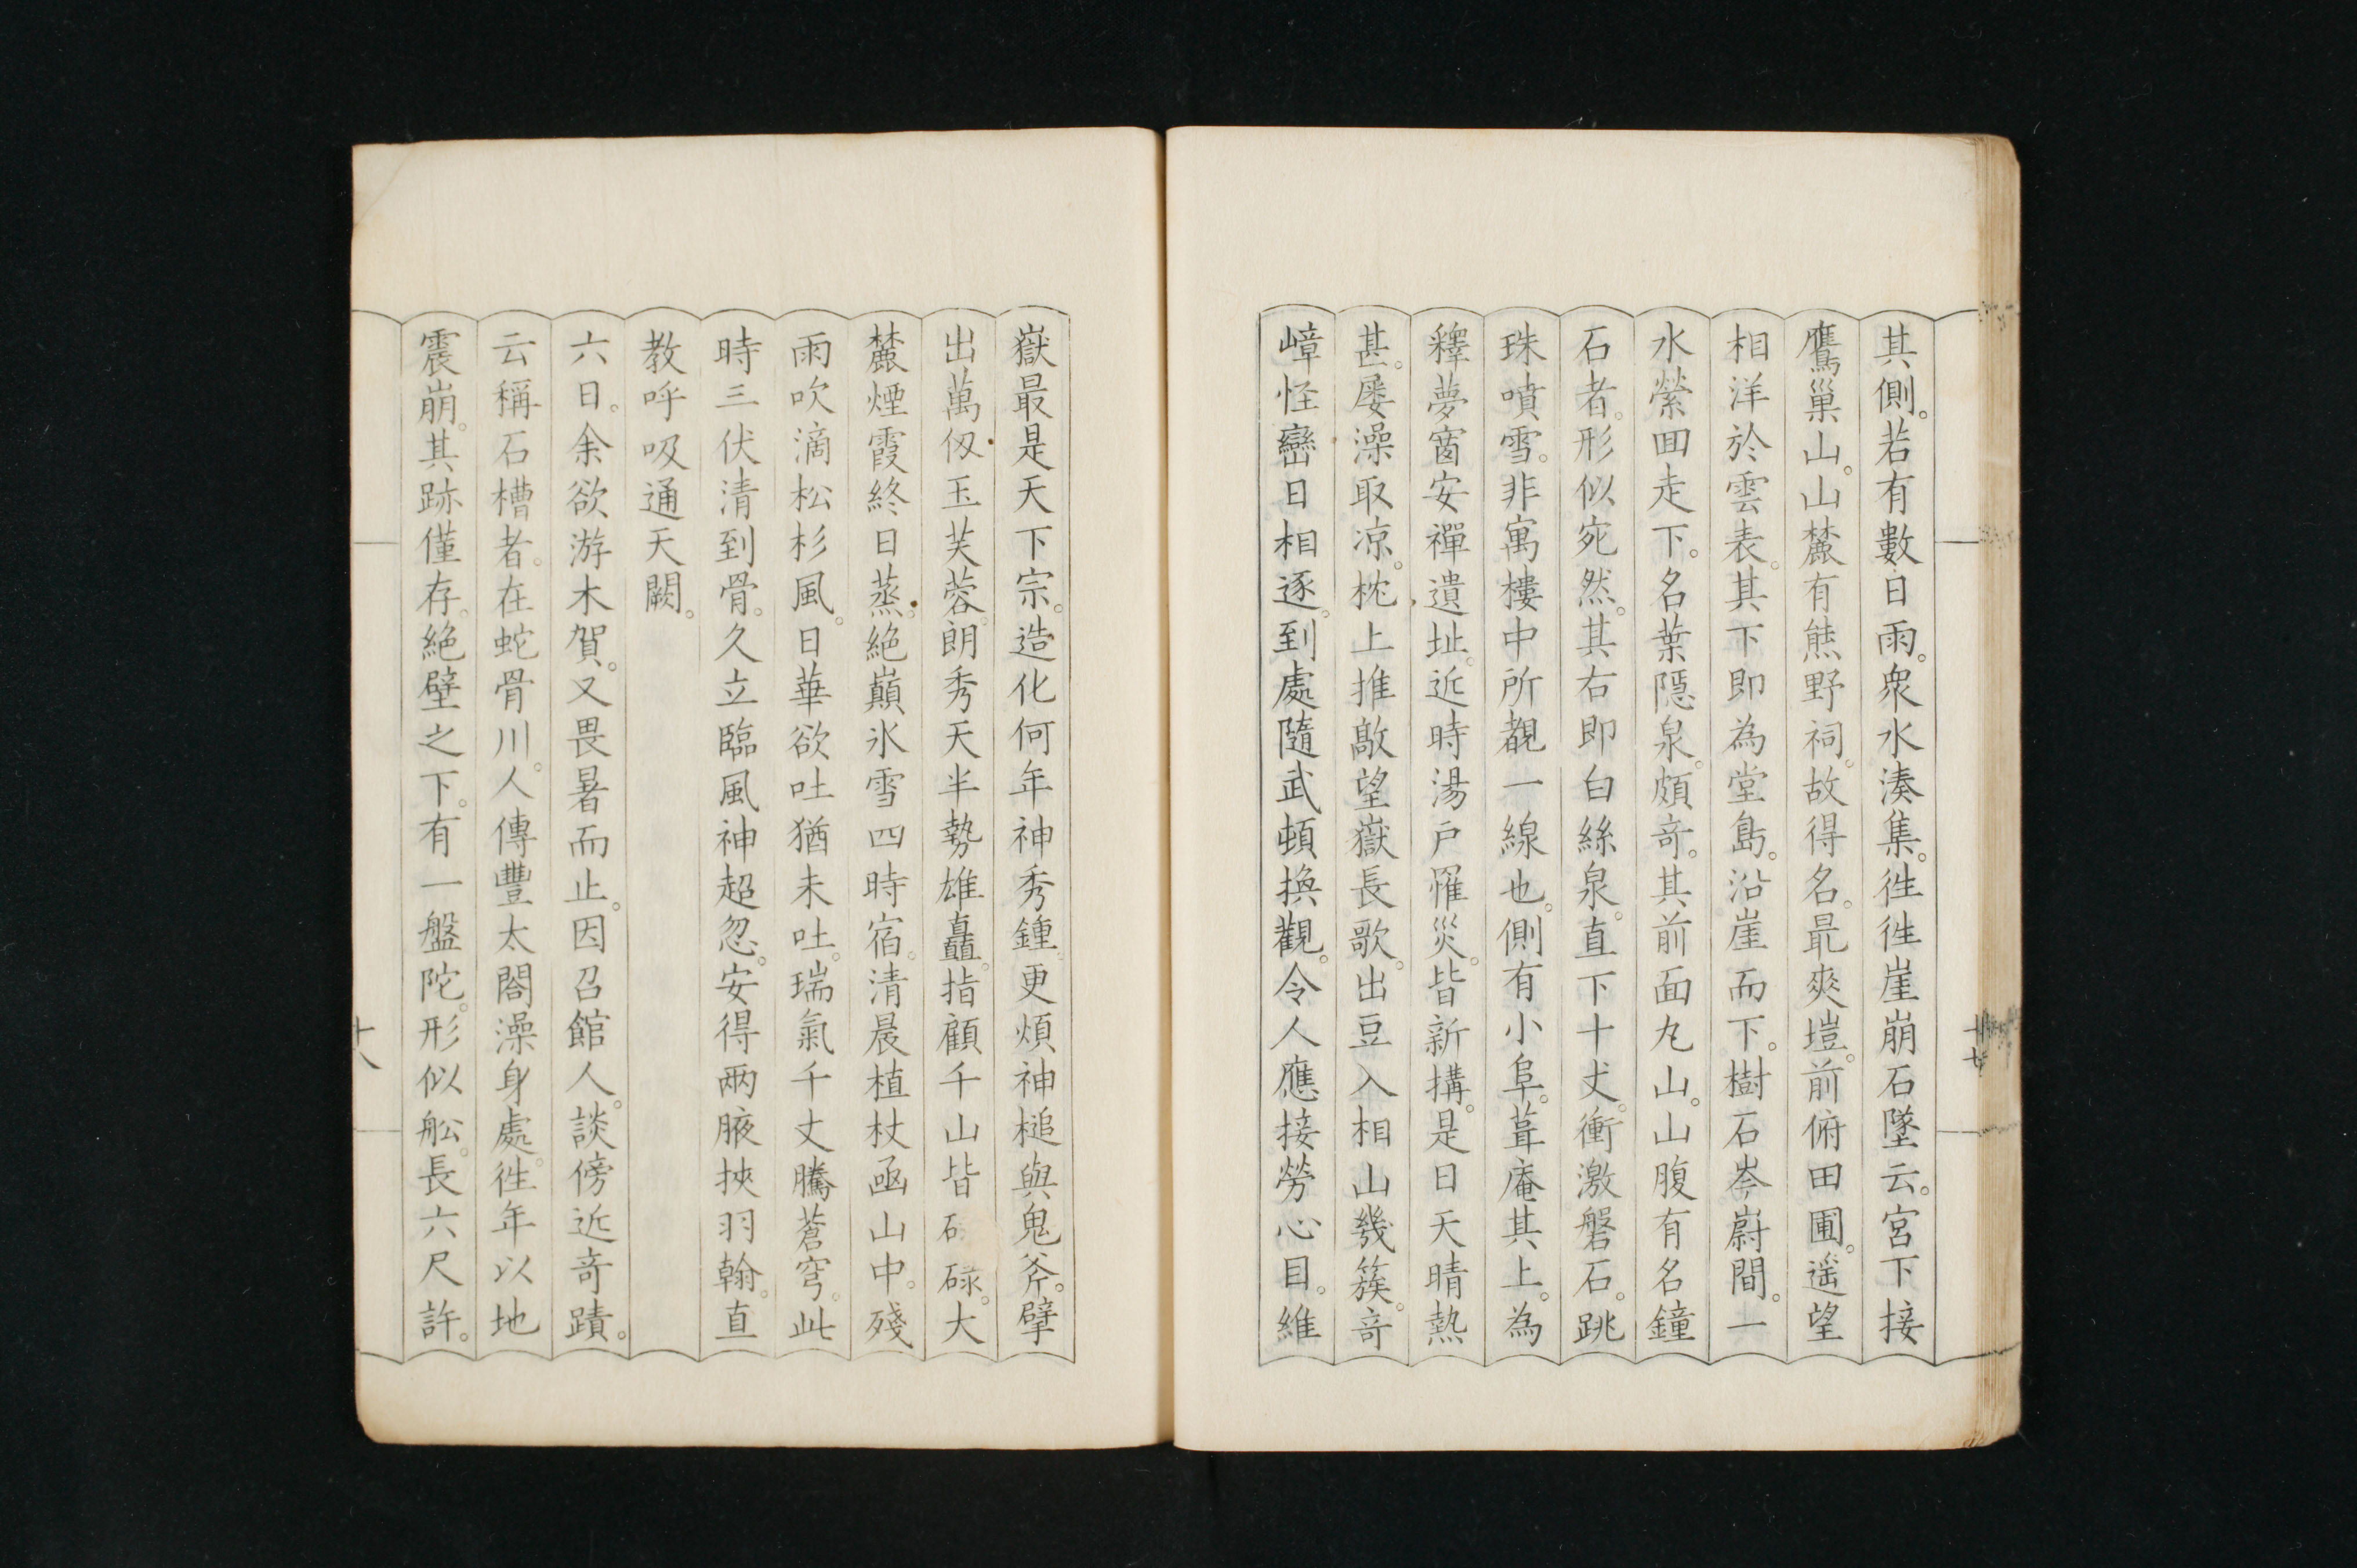 其側。若有數日雨。衆水湊集。徃徃崖崩石墜云。宮下接
鷹巢山。山麓有熊野祠。故得名。最爽塏。前俯田圃。遥望
相洋於雲表。其下即為堂島。沿崖而下。樹石岑嶎間。一
水縈囬走下。名葉隱泉。頗竒。其前面丸山。山腹有名鐘
石者。形似宛然。其右即白絲泉。直下十丈。衝激磐石。跳
珠噴雪。非寓樓中所覩一線也。側有小阜。葺庵其上。為
釋夢窗安禪遺址。近時湯戸罹災。皆新搆。是日天晴熱
甚。屢澡取凉。枕上推敲望嶽長歌。出豆入相山幾簇。竒
嶂怪巒日相逐。到處隨武頓換觀。令人應接勞心目。維
十七
嶽最是天下宗。造化何年神秀鍾。更煩神槌與鬼斧。擘
出萬仭玉芙蓉。朗秀天半勢雄矗。指顧千山皆碌碌。大
麓煙霞終日蒸。絶巔氷雪四時宿。清晨植杖凾山中。殘
雨吹滴松杉風。日華欲吐猶未吐。瑞氣千丈騰蒼穹。此
時三伏清到骨。久立臨風神超忽。安得兩腋挾羽翰。直
教呼吸通天闕。
六日。余欲游木賀。又畏暑而止。因召館人。談傍近竒蹟。
云稱石槽者。在蛇骨川。人傳豐太閤澡身處。徃年以地
震崩。其跡僅存。絶壁之下。有一盤陀。形似舩。長六尺許。
十八